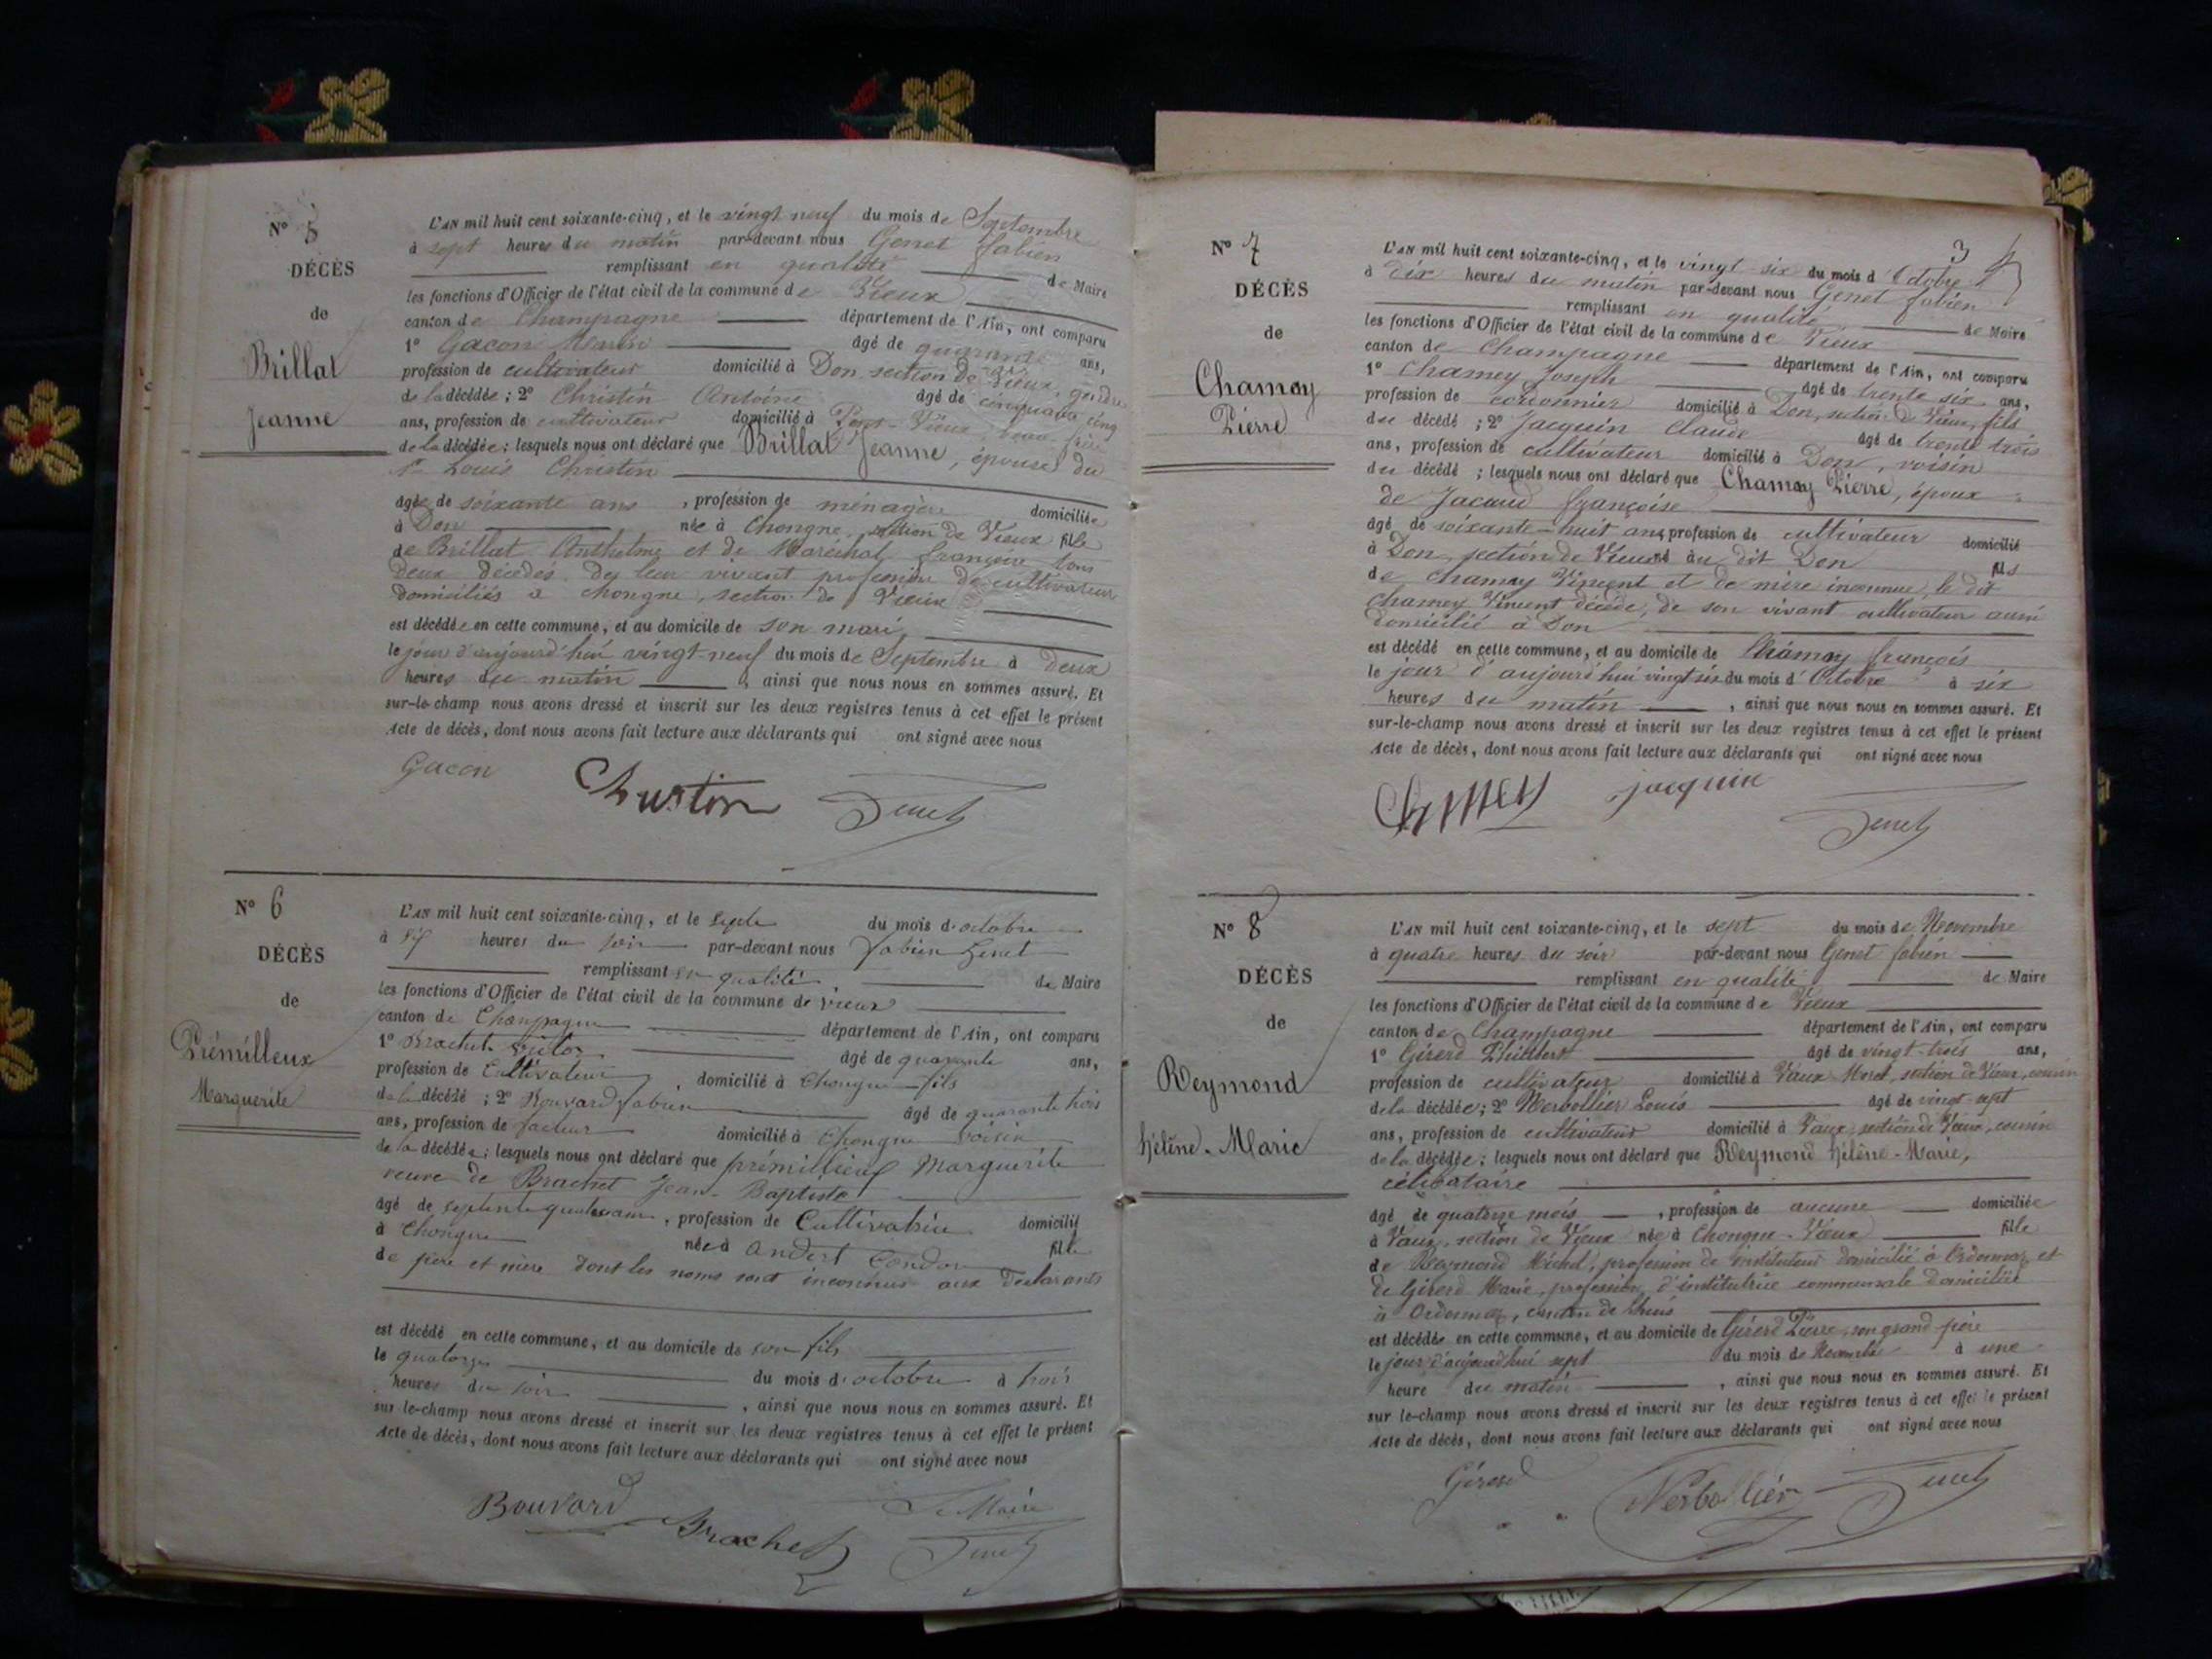 N° 5
DÉCÈS
de
Brillat
Jeanne
L'AN mil huit cent soixante-cinq, et le vingt neuf du mois de Septembre
à sept heures du matin par-devant nous Genet fabien
remplissant en qualité de Maire
les fonctions d'Officier de l'état civil de la commune de Vieux
canton de Champagne département de l'Ain, ont comparu
1° Gacon âgé de quarante ans,
profession de cultivateur domicilié à Don section de Vieux, gendre
de la décédée; 2° Christin Antoine âgé de cinquante cinq
ans, profession de cultivateur domicilié à Vieux, beau-frère
de la décédée; lesquels nous ont déclaré que Brillat Jeanne, épouse du
sr Louis Christin
âgée de soixante ans, profession de ménagère domiciliée
à Don née à Chongne, section de Vieux fille
de Brillat Anthelme et de Maréchal françoise tous
deux décédés de leur vivant profession de cultivateur
domiciliés à Chongne, section de Vieux
est décédée en cette commune, et au domicile de son mari,
le jour d'aujourd'hui vingt-neuf du mois de Septembre à deux
heures du matin, ainsi que nous nous en sommes assuré. Et
sur-le-champ nous avons dressé et inscrit sur les deux registres tenus à cet effet le présent
Acte de décès, dont nous avons fait lecture aux déclarants qui ont signé avec nous
Gacon Christin Genet
N° 6
DÉCÈS
de
Prémilleux
Marguerite
L'AN mil huit cent soixante-cinq, et le du mois d'octobre
à heures du soir par-devant nous fabien Genet
remplissant en qualité de Maire
les fonctions d'Officier de l'état civil de la commune de Vieux
canton de Champagne département de l'Ain, ont comparu
1° Brachet victor âgé de quarante ans,
profession de Cultivateur, domicilié à Chongne fils
de la décédé; 2° Bouvard fabien âgé de quarante trois
ans, profession de facteur domicilié à Chongne voisin
de la décédée; lesquels nous ont déclaré que prémillieux Marguerite
veuve de Brachet Jean-Baptiste
âgé de septente quatre ans, profession de Cultivatrice domicilié
à Chongne née à Andert Condon fille
de père et mère dont les noms sont inconnus aux déclarants
est décédé en cette commune, et au domicile de son fils
le quatorze du mois d'octobre à trois
heures du soir, ainsi que nous nous en sommes assuré. Et
sur le-champ nous avons dressé et inscrit sur les deux registres tenus à cet effet le présent
Acte de décès, dont nous avons fait lecture aux déclarants qui ont signé avec nous
Bouvard Brachet Le Maire
Genet
3
N° 7
DÉCÈS
de
Chamay
Pierre
L'AN mil huit cent soixante-cinq, et le vingt six du mois d'Octobre
à dix heures du matin par-devant nous Genet fabien
remplissant en qualité de Maire
les fonctions d'Officier de l'état civil de la commune de Vieux
canton de Champagne département de l'Ain, ont comparu
1° Chamey Joseph âgé de trente six ans,
profession de cordonnier domicilié à Don, section de Vieux, fils
du décédé; 2° Jacquin Claude âgé de trente trois
ans, profession de cultivateur domicilié à Don, voisin
du décédé; lesquels nous ont déclaré que Chamay Pierre, époux
de Jacquid françoise
âgé de soixante-huit ans profession de cultivateur domicilié
à Don, section de Vieux né au dit Don fils
de Chamay Vincent et de mère inconnue, le dit
Chamey Vincent décédé, de son vivant cultivateur aussi
domicilié à Don
est décédé en cette commune, et au domicile de Chamay françois
le jour d'aujourd'hui vingt six du mois d'Octobre à six
heures du matin, ainsi que nous nous en sommes assuré. Et
sur-le-champ nous avons dressé et inscrit sur les deux registres tenus à cet effet le présent
Acte de décès, dont nous avons fait lecture aux déclarants qui ont signé avec nous
jacquin
Genet
N° 8
DÉCÈS
de
Reymond
hélène-Marie
L'AN mil huit cent soixante-cinq, et le sept du mois de Novembre
à quatre heures du soir par-devant nous Genet fabien
remplissant en qualité de Maire
les fonctions d'Officier de l'état civil de la commune de Vieux
canton de Champagne département de l'Ain, ont comparu
1° Girerd Philibert âgé de vingt-trois ans,
profession de cultivateur domicilié à Vaux Moret, section de Vieux, cousin
de la décédée; 2° Nerbollier Louis âgé de vingt-sept
ans, profession de cultivateur domicilié à Vaux, section de Vieux, cousin
de la décédée; lesquels nous ont déclaré que Reymond hélène-Marie,
célibataire
âgé de quatorze mois, profession de aucune domiciliée
à Vaux, section de Vieux née à Chongne-Vieux fille
de Reymond Michel, profession de instituteur domicilié à Ordonnaz, et
de Girerd Marie, profession d'institutrice communale domiciliée
à Ordonnaz, canton de Lhuis
est décédée en cette commune, et au domicile de Girerd Pierre, son grand père
le jour d'aujourd'hui sept du mois de Novembre à une
heure du matin, ainsi que nous nous en sommes assuré. Et
sur le-champ nous avons dressé et inscrit sur les deux registres tenus à cet effet le présent
Acte de décès, dont nous avons fait lecture aux déclarants qui ont signé avec nous
Girerd Nerbollier Genet